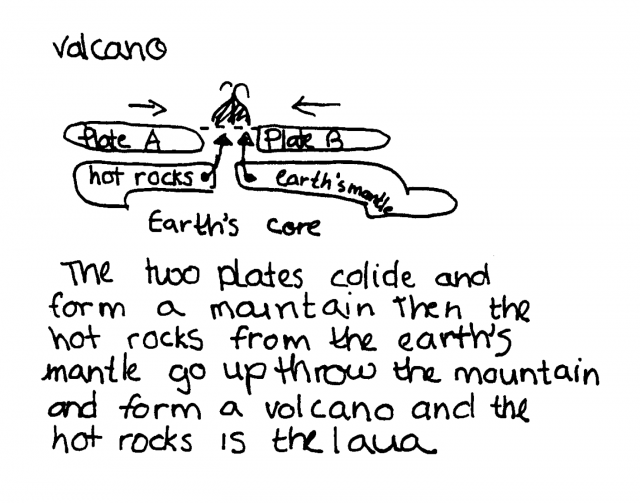 volcano
Plate A Plate B
hot rocks earth's mantle
Earth's core
The two plates colide and
form a mountain Then the
hot rocks from the earth's
mantle go up throw the mountain
and form a volcano and the
hot rocks is the lava